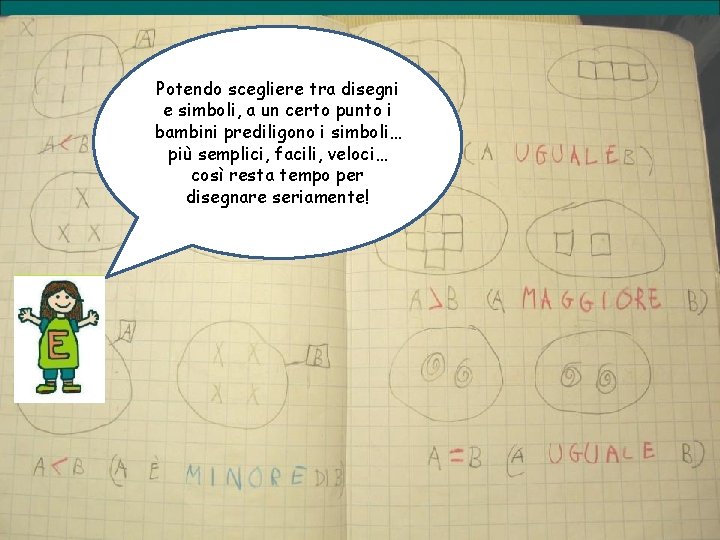 Potendo scegliere tra disegni
e simboli, a un certo punto i
bambini prediligono i simboli...
più semplici, facili, veloci...
così resta tempo per
disegnare seriamente!
A
A<B
(A UGUALE B)
A>B (A MAGGIORE B)
E
A
B
A<B (A È MINORE DI B)
A=B (A UGUALE B)